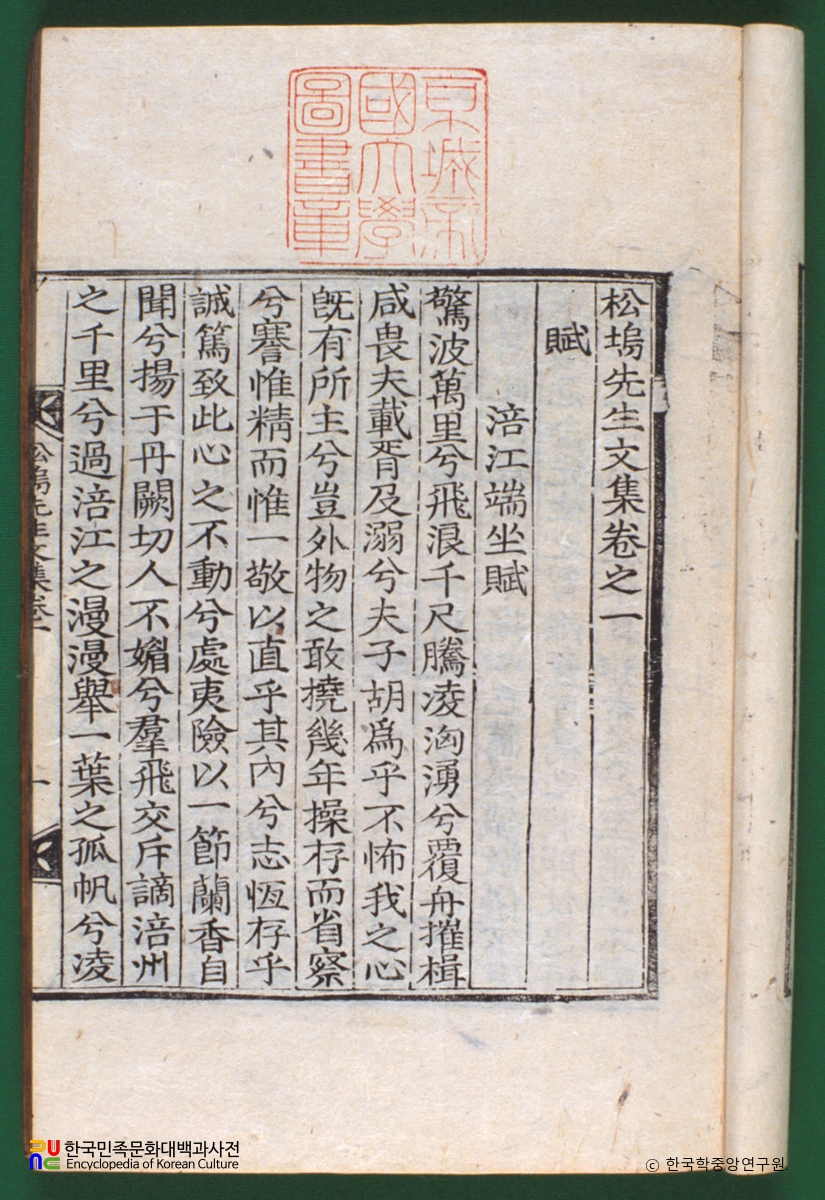 京城帝
國大學
圖書章
松塢先生文集卷之一
賦
涪江端坐賦
驚波萬里兮飛浪千尺騰凌洶湧兮覆舟摧楫
咸畏夫載胥及溺兮夫子胡爲乎不怖我之心
旣有所主兮豈外物之敢撓幾年操存而省察
兮謇惟精而惟一敬以直乎其內兮志恆存乎
誠篤致此心之不動兮處夷險以一節蘭香自
聞兮揚于丹闕切人不媚兮羣飛交斥謫涪州
之千里兮過涪江之漫漫舉一葉之孤帆兮凌
松塢先生文集卷一
一
한국민족문화대백과사전
Encyclopedia of Korean Culture
© 한국학중앙연구원